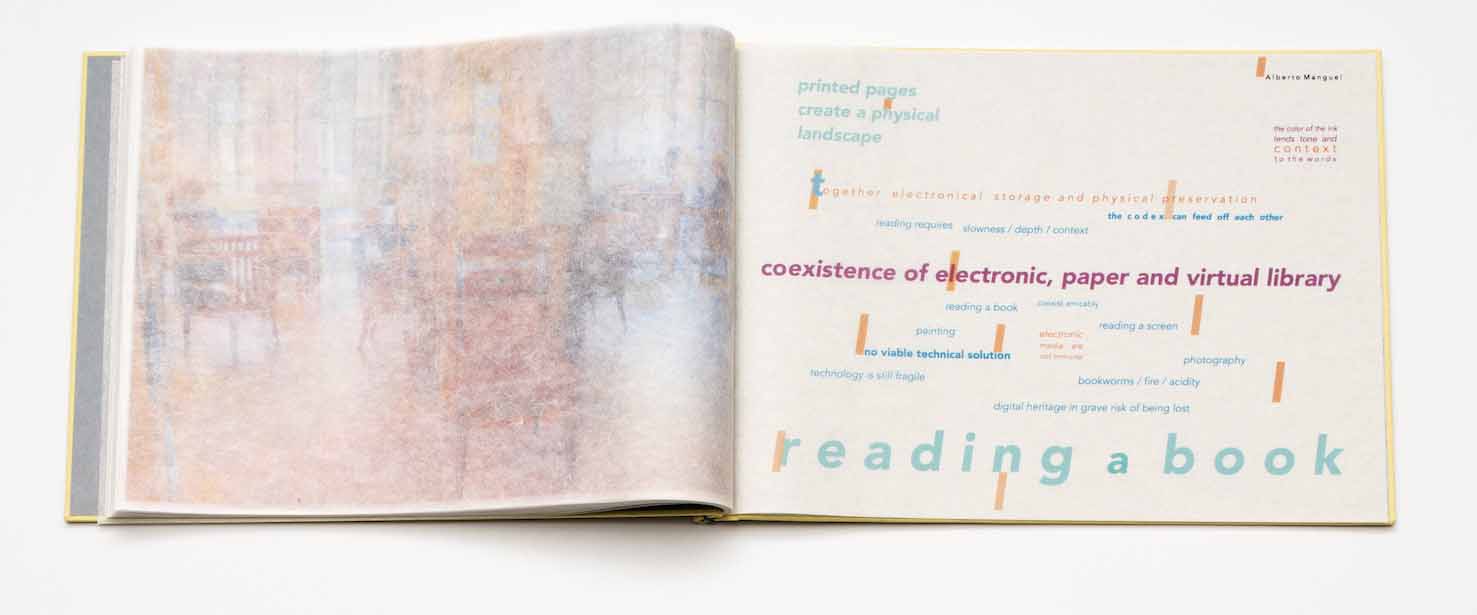 Alberto Manguel
printed pages
create a physical
landscape
the color of the ink
lends tone and
context
to the words
together electronical storage and physical preservation
the codex can feed off each other
reading requires slowness / depth / context
coexistence of electronic, paper and virtual library
coexist amicably
reading a book
reading a screen
painting
electronic
media are
not immune
no viable technical solution
photography
technology is still fragile
bookworms / fire / acidity
digital heritage in grave risk of being lost
reading a book